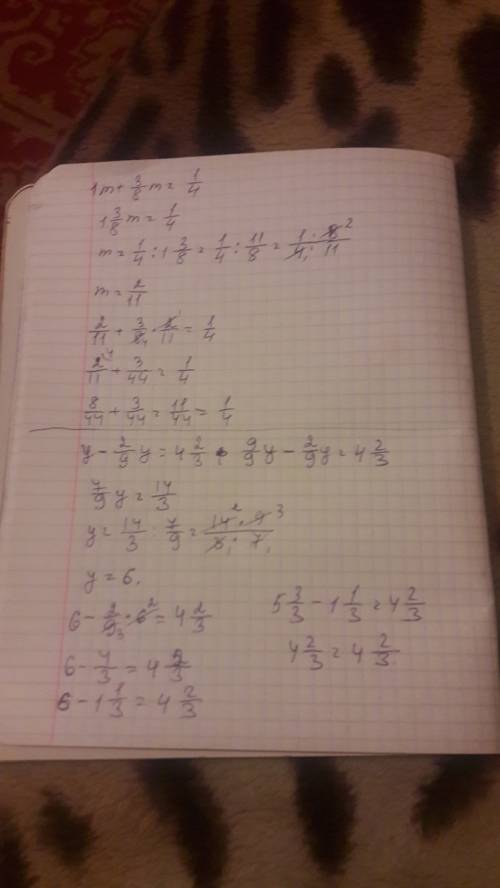 1m + 3/8 m = 1/4
1 3/8 m = 1/4
m = 1/4 : 1 3/8 = 1/4 : 11/8 = 1 · 8 2 / 4 1 · 11
m = 2/11
2/11 + 3/8 4 · 2 1/11 = 1/4
2 4/11 + 3/44 = 1/4
8/44 + 3/44 = 11/44 = 1/4
y - 2/9 y = 4 2/3 9/9 y - 2/9 y = 4 2/3
7/9 y = 14/3
y = 14/3 : 7/9 = 14 2 · 9 3 / 3 1 · 7 1
y = 6.
6 - 2/9 3 · 6 2 = 4 2/3
6 - 4/3 = 4 2/3
6 - 1 1/3 = 4 2/3
5 3/3 - 1 1/3 = 4 2/3
4 2/3 = 4 2/3